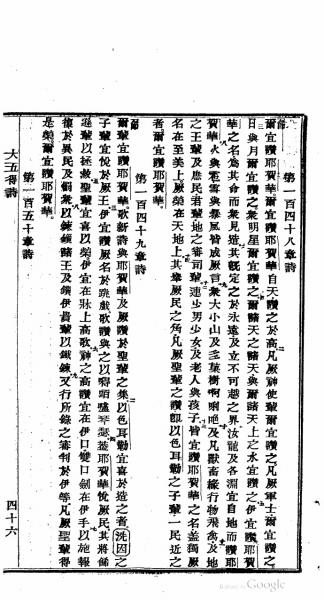 第一百四十八章詩
節爾宜讚耶賀華爾宜讚耶賀華自天讚之於高凡厥神使輩爾宜讚之凡厥軍士爾宜讚之
日與月爾宜讚之衆明星爾宜讚之諸天之諸天與爾諸天上之水宜讚之伊宜讚耶賀
華之名爲其命而衆見造其旣定之於永遠及立不可越之界汝龍及各淵宜自地而讚耶
賀華火與雹雪與暴風皆成厥言衆大小山及菓樹及凡獸畜緣行物飛禽及地
之王輩及庶民君輩地之審司輩連少男少女及老人與孩子皆宜讚耶賀華之名蓋獨厥
名在至美上厥榮在天地上其舉厥民之角凡厥聖輩之讚卽以色耳勒之子輩一民近之
者爾宜讚耶賀華
第一百四十九章詩
節爾輩宜讚耶賀華歌新詩與耶賀華及厥讚於聖輩之集以色耳勒宜喜於造之者洗因之
子輩宜悅於厥王伊宜讚厥名於跳戲歌讚與之以琴瑟蓋耶賀華悅厥民其將餙
遜輩以拯救聖輩宜喜以榮伊宜在牀上高歌神之高讚宜在伊口雙口劍在伊手以施報
復於異民及罰衆以鍊鎖諸王及鎖伊貴輩以鐵鍊又行所錄之審判於伊等凡厥聖輩得
是榮爾宜讚耶賀華
第一百五十章詩
大五得詩
四十六
Google